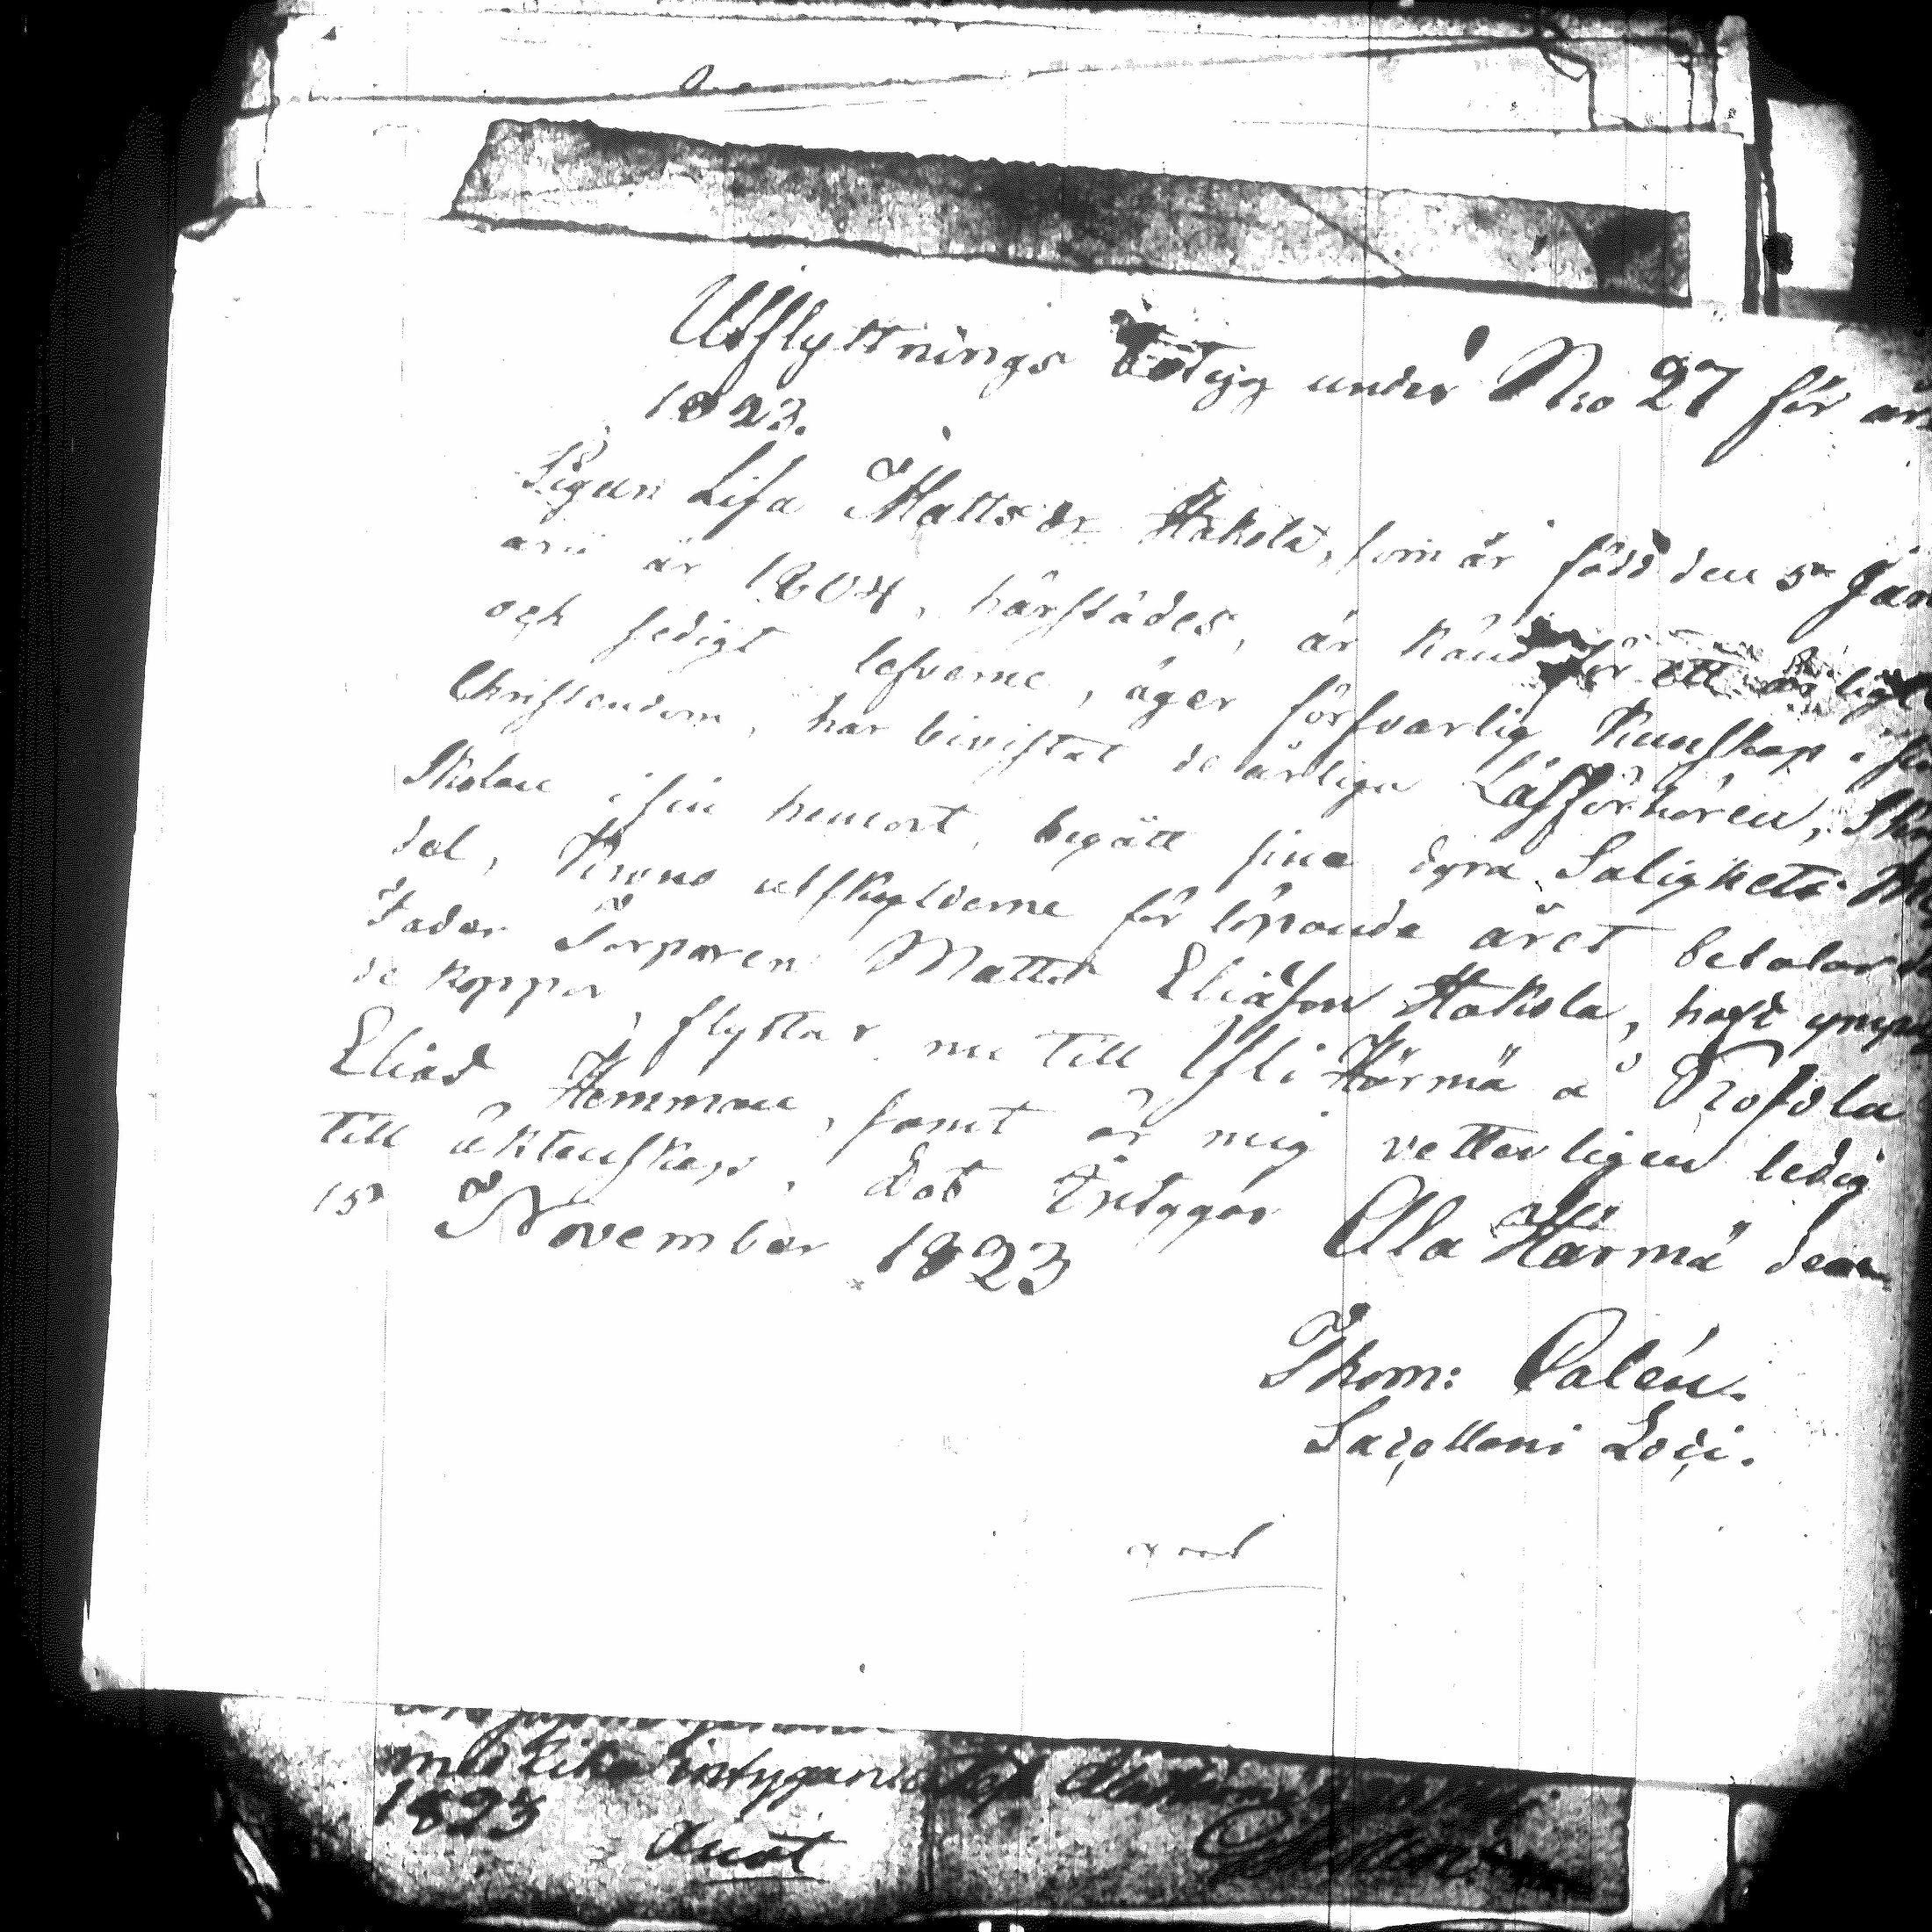 Utflyttnings Betyg under No 27 för år
1823.
Pigan Lisa Mattsdr Hakola, som är född den 5te Janu
arii år 1804, härstädes, är känd för ett ärligt
och sedigt lefverne, äger försvarlig kunskap i sin
Christendom, har bivistat de årliga Läsförhören, Skrift
Skolan i sin hemort, begått sina dyra Salighets Me
del, Krono utskylderne för löpande året betalar dess
Fader Torparen Matts Eliasson Hakola, haft ympa
de koppor, flyttar nu till Yli Härmä å Kosola
Elias Hemman, samt är mig vetterligen ledig
till äktenskap, det intygar Ala Härmä den
15de November 1823
Thom: Calén.
Sacellani Loci.
med lika intygande
1823